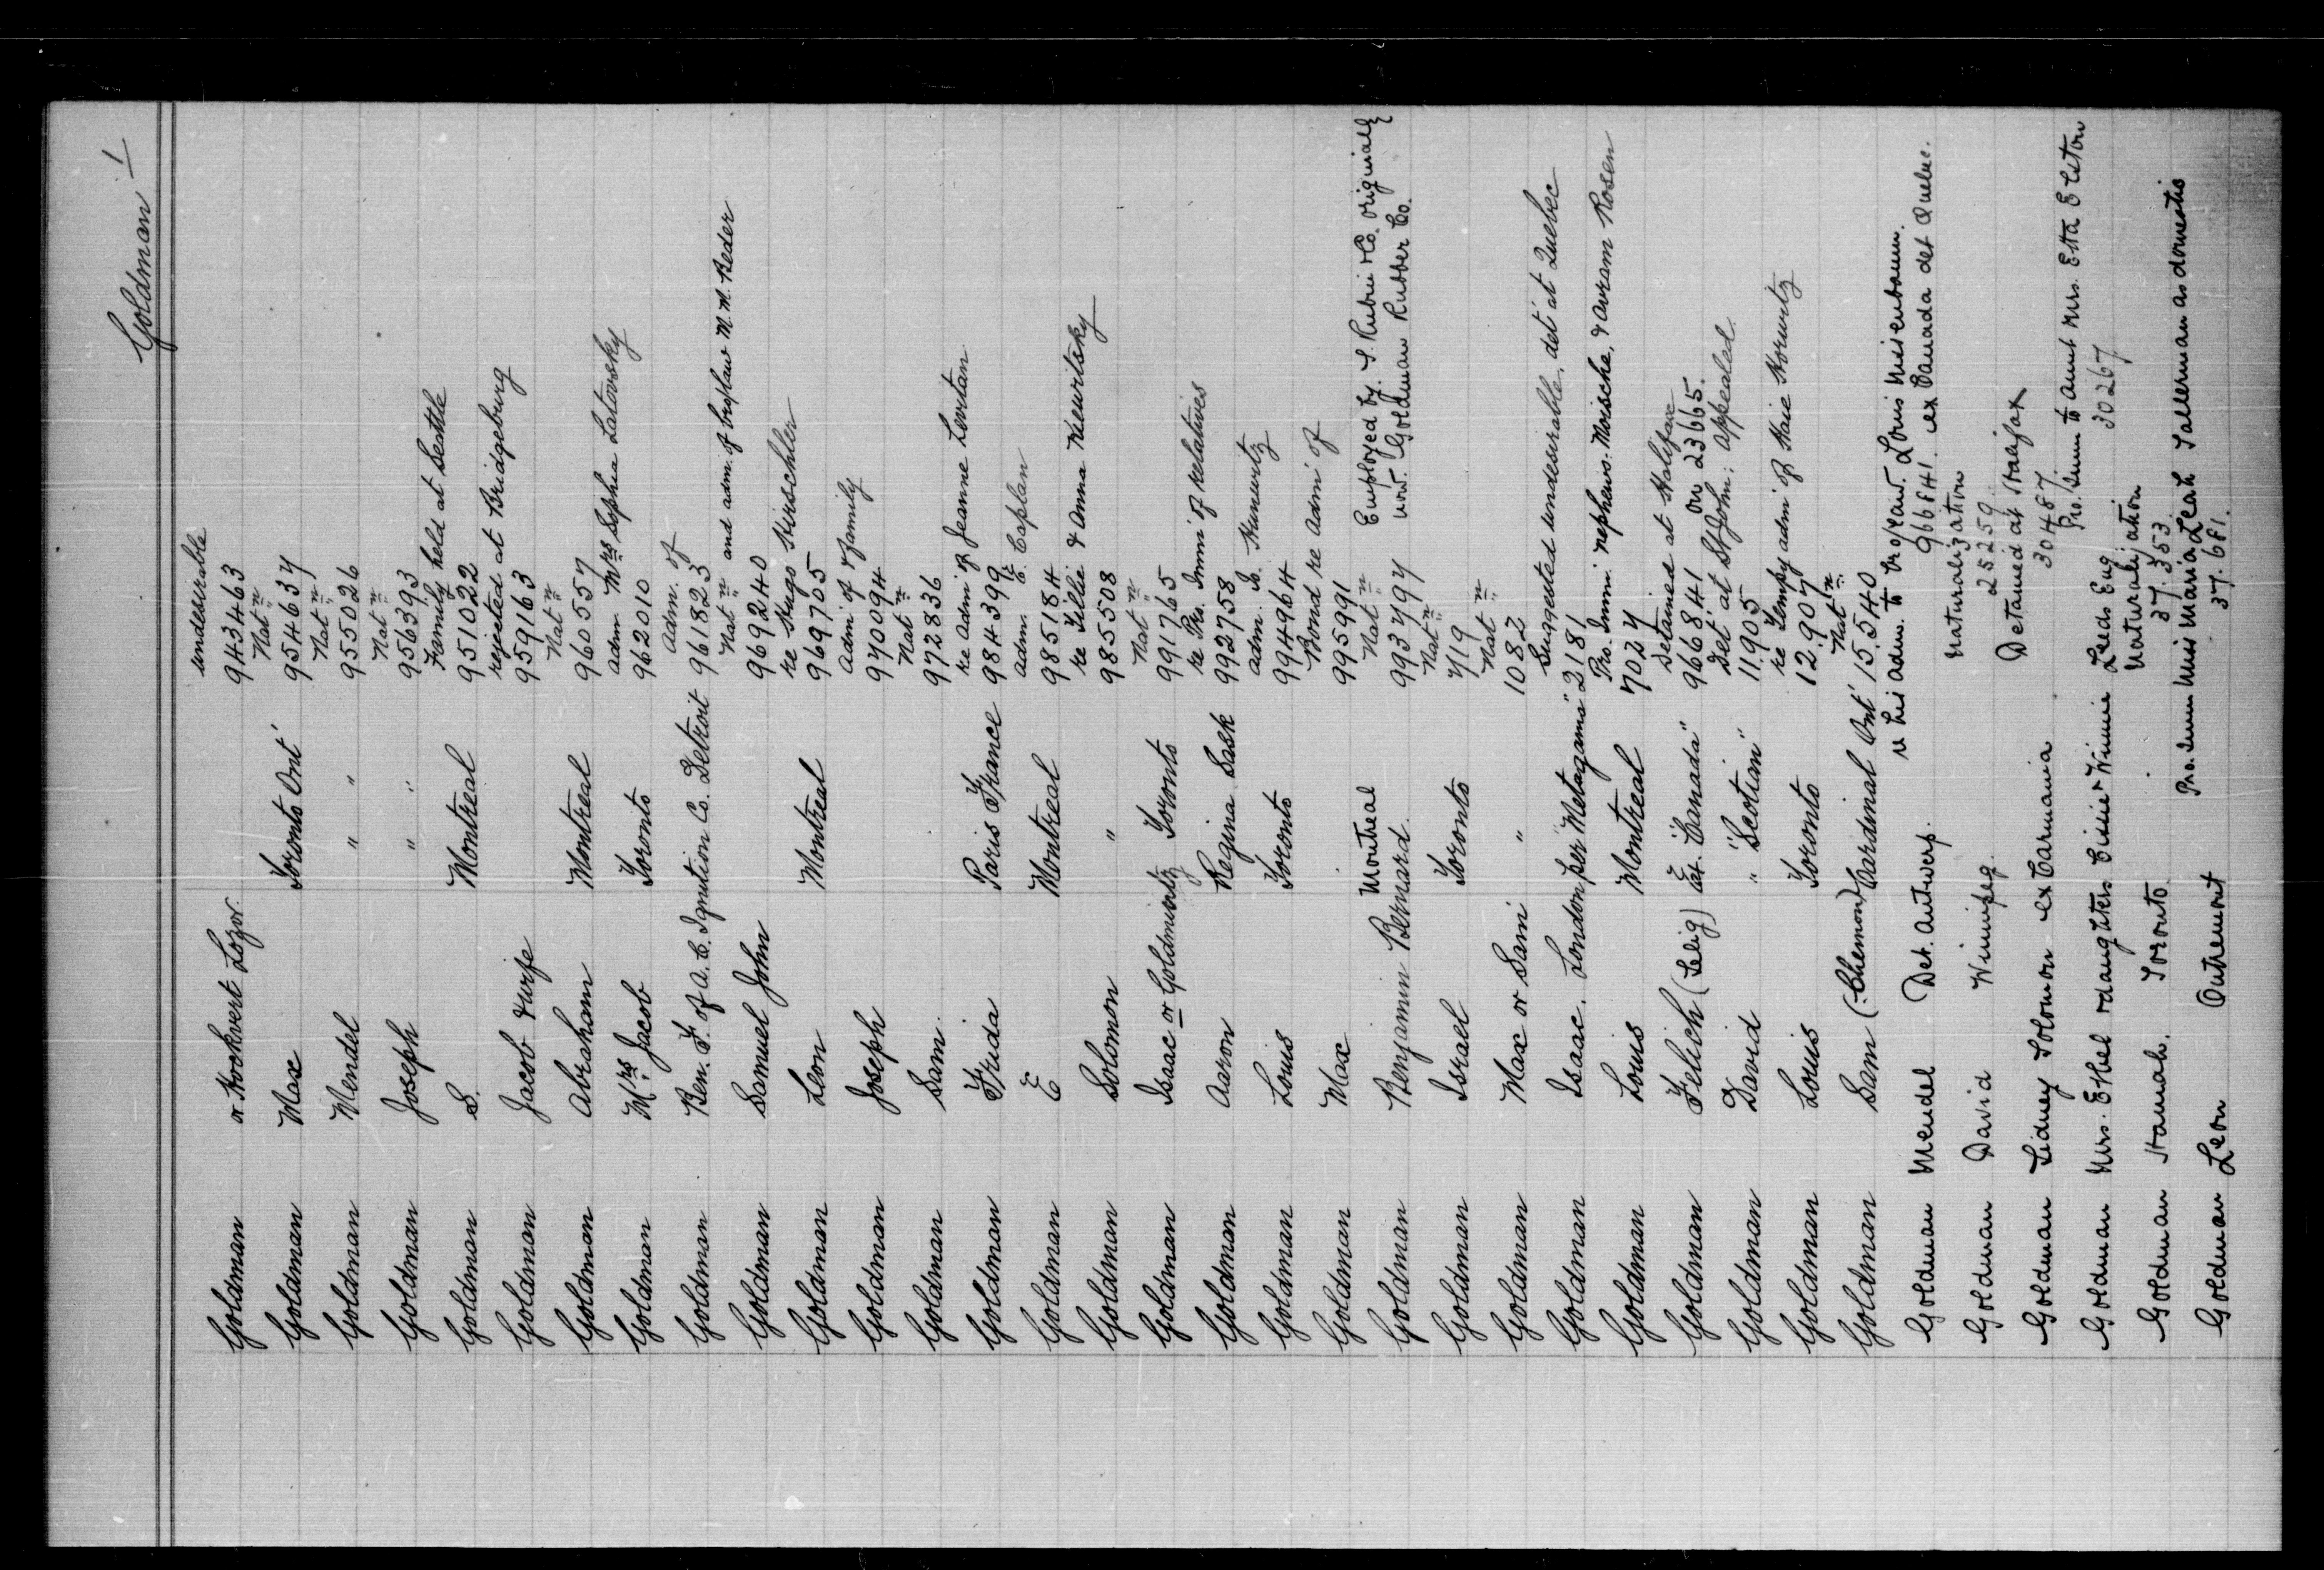 Goldman 1
undesirable
Goldman or Hockvert Lozor. 943463
Nat'n
Goldman Max Toronto Ont' 954637
Nat'n
Goldman Mendel " " 955026
Nat'n
Goldman Joseph " " 956393
Family held at Seattle
Goldman S. Montreal 951022
rejected at Bridgeburg
Goldman Jacob & wife 959163
Nat'n
Goldman Abraham Montreal 960557
adm Mrs Sophia Latovsky
Goldman Mrs. Jacob Toronto 962010
adm. of
Goldman Ben. F. of A.C. Ignition Co. Detroit 961823
Nat'n and adm. of bro/law M. M. Beder
Goldman Samuel John 969240
re Hugo Hirschler
Goldman Leon Montreal 969705
adm' of family
Goldman Joseph 970094
Nat'n
Goldman Sam. 972836
re adm' of Jeanne Levitan
Goldman Frida Paris France 984399
adm. C. Caplan
Goldman E Montreal 985184
re Tillie & Anna Kiewitsky
Goldman Solomon " 985508
Nat'n
Goldman Isaac or Goldmuntz Toronto 991765
re Pro. Immi' of relatives
Goldman Aaron Regina Sask 992758
adm. Is. Hurwitz
Goldman Louis Toronto 994964
Bond re adm' of
Goldman Max 995991
Nat'n Employed by S. Rubin & Co. originally
Goldman Benjamin Bernard Montreal 993797 now Goldman Rubber Co.
Nat'n
Goldman Israel Toronto 719
Nat'n
Goldman Max or Sam " 1082
Suggested undesirable, det' at Quebec
Goldman Isaac. London per "Metagama" 2181
Pro. Immi. nephews. Moische, & Avram Rosen
Goldman Louis Montreal 7024
Detained at Halifax
Goldman Felich (Selig) "Canada" 966841 on 23665.
Det' at St John: appealed.
Goldman David " "Scotian" 11905
re Tempy adm' of Haie Horwitz
Goldman Louis Toronto 12.907
Nat'n
Goldman Sam (Chemon) Cardinal Ont' 15.540
re his adm. to bro/law. Louis Nisenbaum.
Goldman Mendel Det. Antwerp. 966841. ex Canada det Quebec.
Naturalization
Goldman David Winnipeg. 25259.
Detained at Halifax
Goldman Sidney Solomon ex Carmania 30487
Pro. Imm to aunt Mrs. Etta Elston
Goldman Mrs. Ethel & daughters Cissie & Winnie Leeds Eng 30267
Naturalization
Goldman Hannah. Toronto. 37.353
Pro. Imm Miss Maria Leah Tallerman as domestic
Goldman Leon Outremont 37.681.